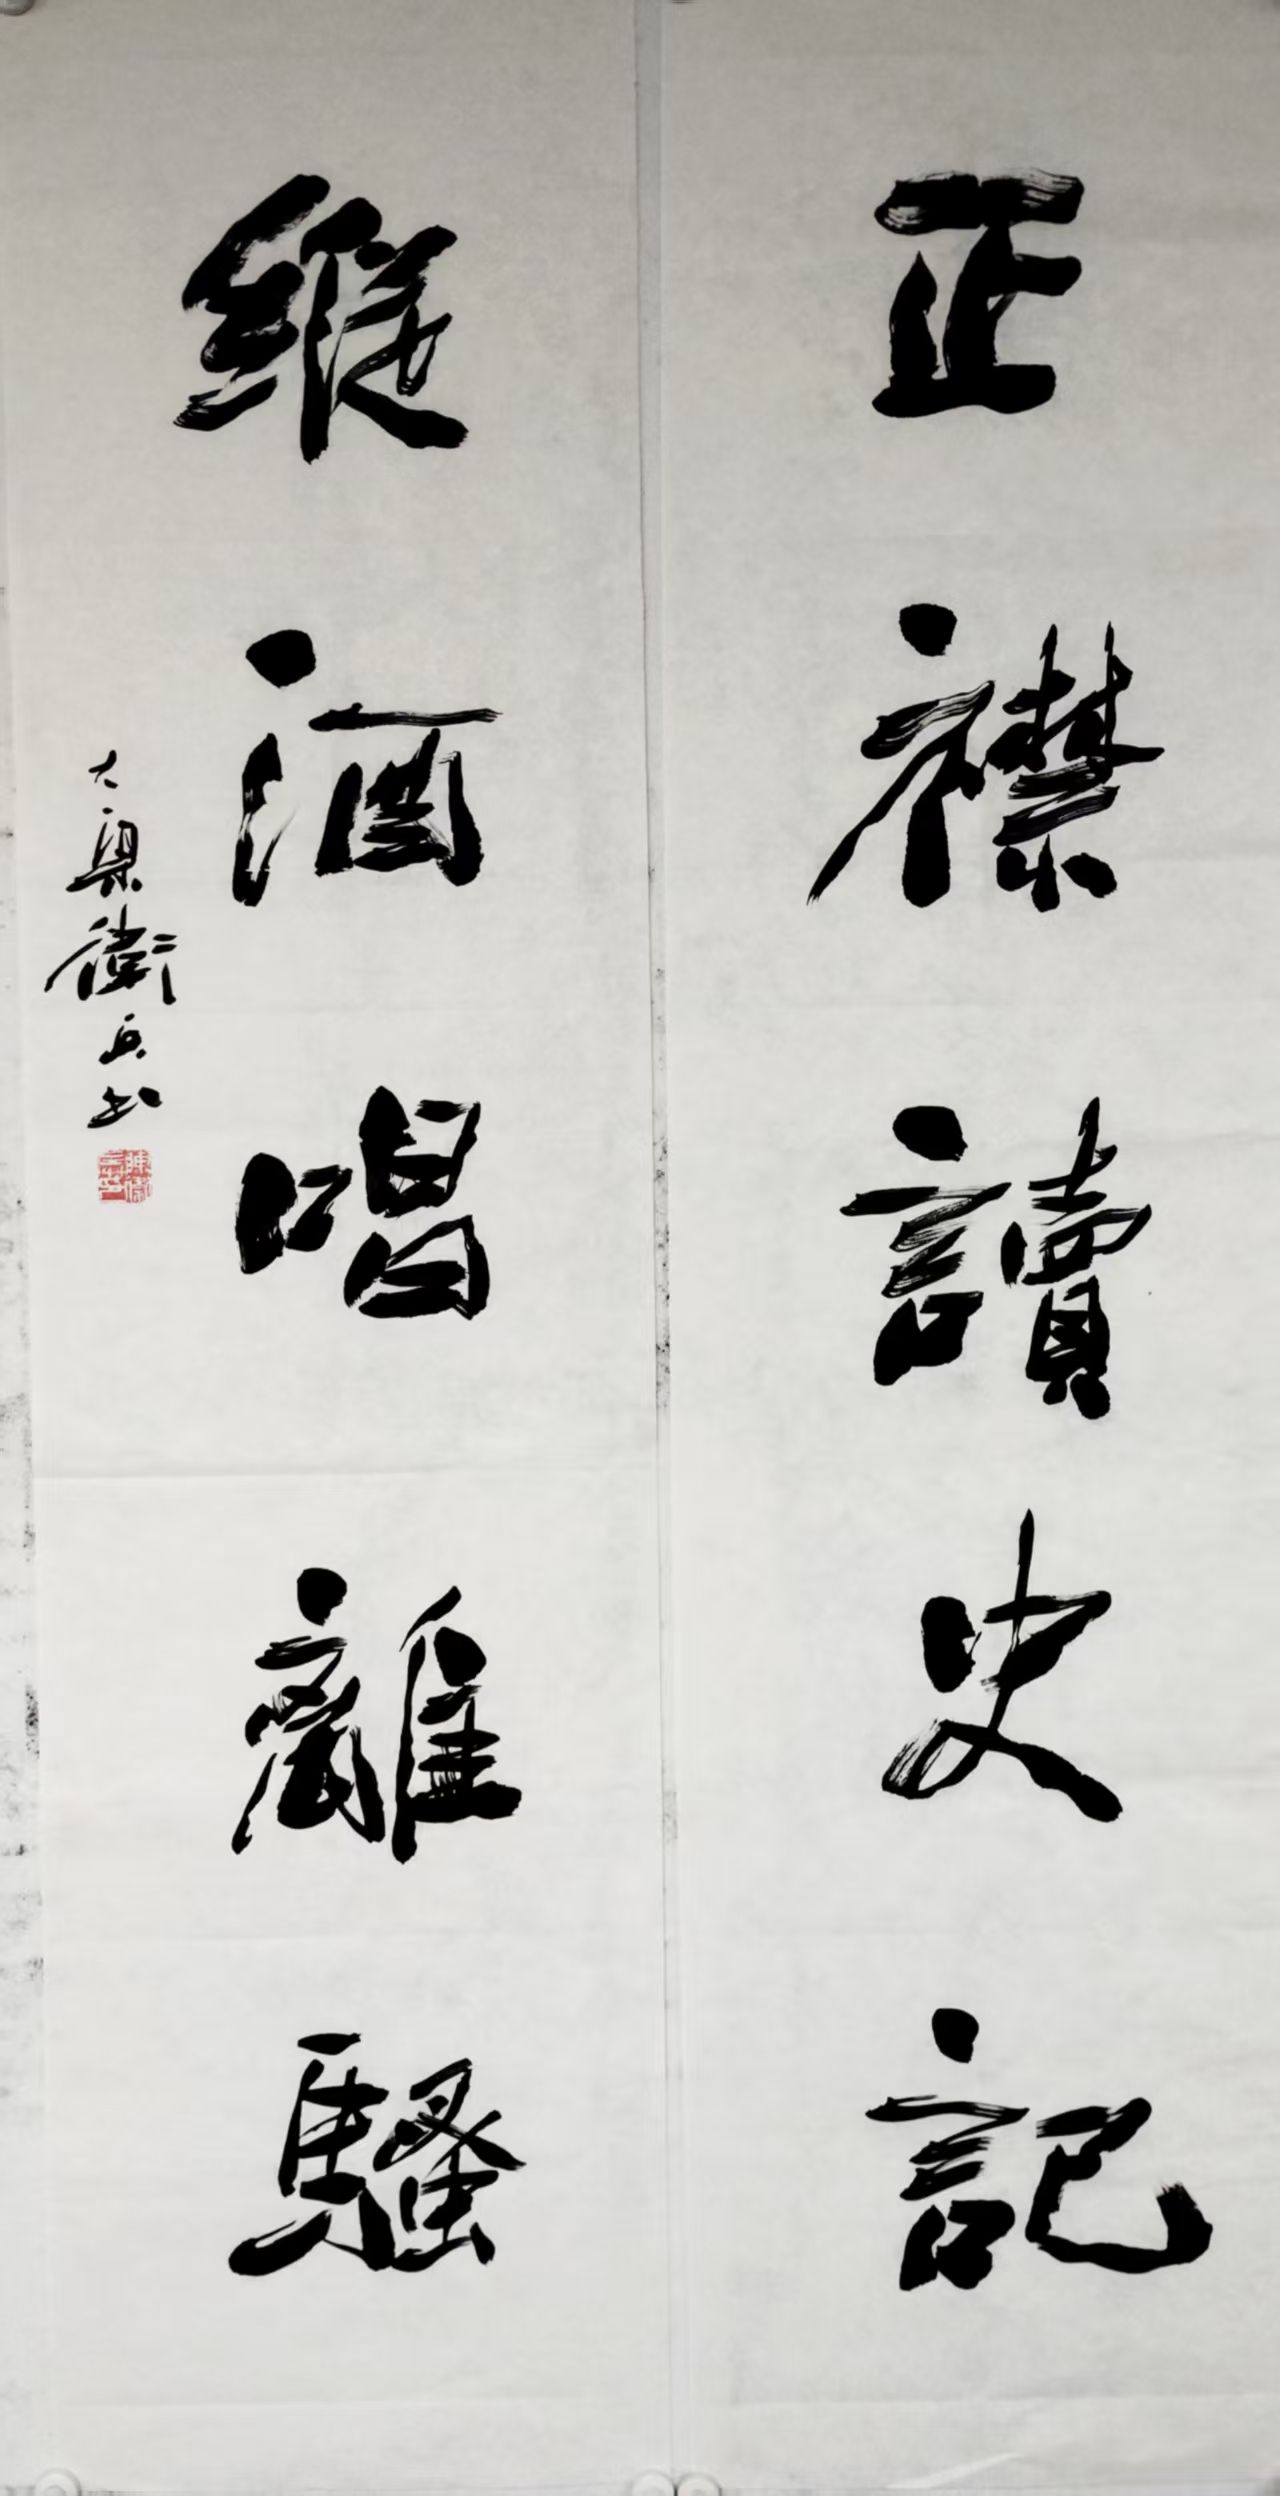 正襟讀史記
縱酒唱離騷
大梁衛兵書